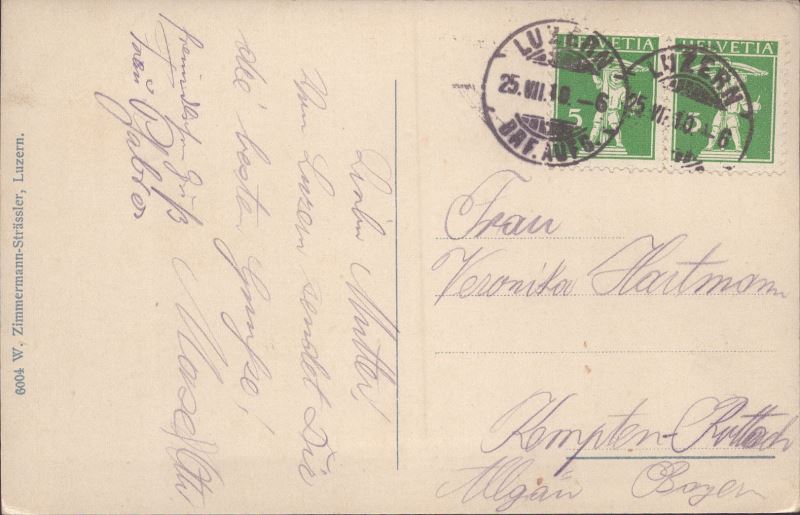 Liebe Mutter!
Von Luzern sendet Dir
die besten Grüße!
freundlichen Gruß
6004 W. Zimmermann-Strässler, Luzern.
LUZERN
25.VII.10.–6
BRF. AUFG.
HELVETIA
5
LUZERN
25.VII.10.–6
HELVETIA
5
Frau
Veronika Hartmann
Kempten-Rottach
Allgäu Bayern